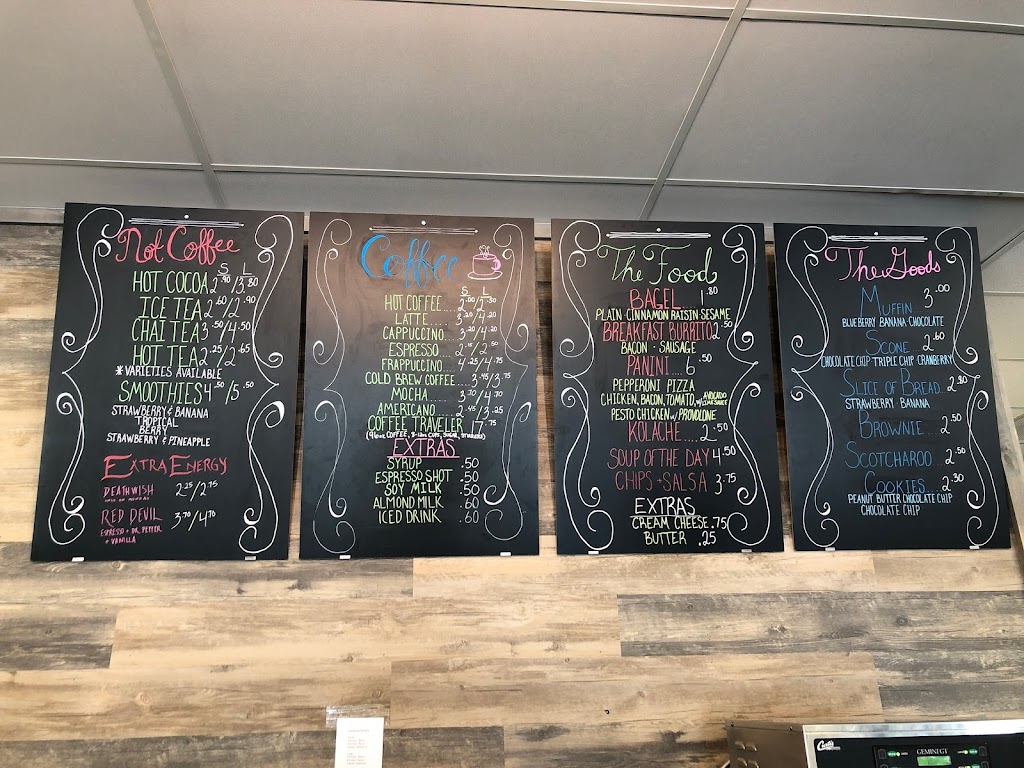 Not Coffee
S L
HOT COCOA 2.90/3.80
ICE TEA 2.60/2.90
CHAI TEA 3.50/4.50
HOT TEA 2.25/2.65
*VARIETIES AVAILABLE
SMOOTHIES 4.50/5.50
STRAWBERRY & BANANA
TROPICAL
BERRY
STRAWBERRY & PINEAPPLE
EXTRA ENERGY
DEATHWISH 2.25/2.75
RED DEVIL 3.70/4.70
ESPRESSO + DR. PEPPER
+ VANILLA
Coffee
S L
HOT COFFEE.... 2.00/2.30
LATTE..... 3.20/4.20
CAPPUCCINO.. 3.20/4.20
ESPRESSO... 2.15/2.50
FRAPPUCCINO... 4.25/4.75
COLD BREW COFFEE.... 3.45/3.75
MOCHA..... 3.70/4.70
AMERICANO..... 2.45/3.25
COFFEE TRAVELER 17.75
(96oz COFFEE, 8-12oz CUPS, SUGAR, STIRRERS)
EXTRAS
SYRUP .50
ESPRESSO SHOT .50
SOY MILK .50
ALMOND MILK .60
ICED DRINK .60
The Food
BAGEL.... 1.80
PLAIN CINNAMON RAISIN SESAME
BREAKFAST BURRITO 2.50
BACON - SAUSAGE
PANINI.... 6.50
PEPPERONI PIZZA
CHICKEN, BACON, TOMATO, AVOCADO
PESTO CHICKEN w/ PROVOLONE
KOLACHE.... 2.50
SOUP OF THE DAY 4.50
CHIPS + SALSA 3.75
EXTRAS
CREAM CHEESE .75
BUTTER .25
The Goods
MUFFIN 3.00
BLUEBERRY BANANA CHOCOLATE
SCONE 2.60
CHOCOLATE CHIP TRIPLE CHIP CRANBERRY
SLICE OF BREAD 2.80
STRAWBERRY BANANA
BROWNIE... 2.50
SCOTCHAROO 2.50
COOKIES.... 2.30
PEANUT BUTTER CHOCOLATE CHIP
CHOCOLATE CHIP
Curtis
GEMINIGT